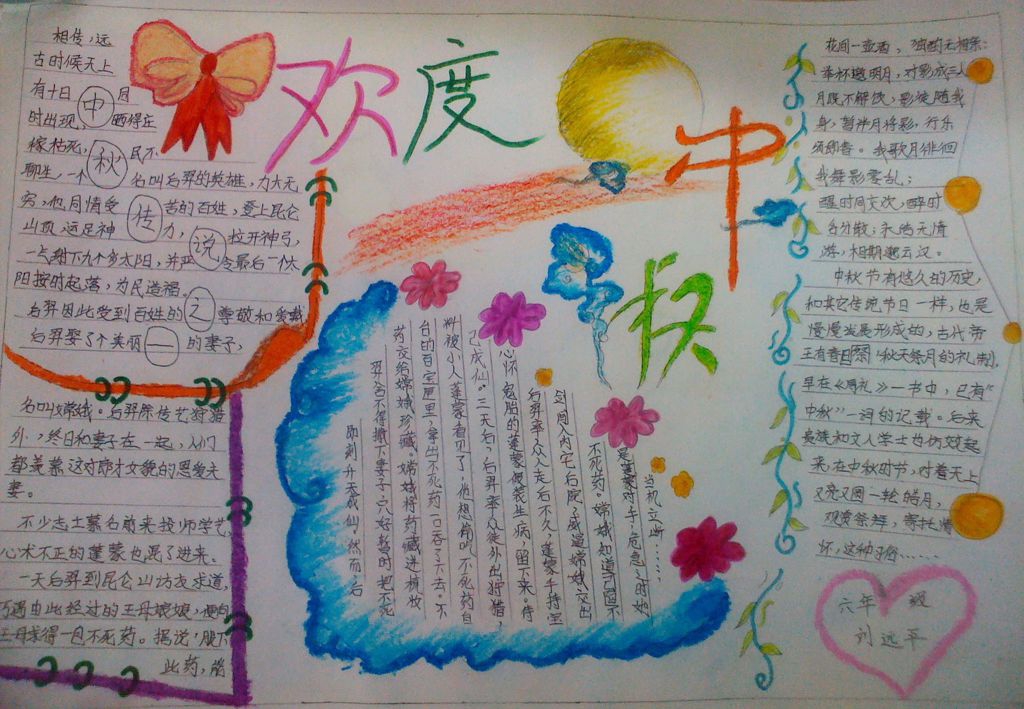 欢度中秋
相传，远
古时候天上
有十日 月
时出现，晒得庄
稼枯死，民不
聊生，一个 名叫后羿的英雄，力大无
穷，他同情受 苦的百姓，登上昆仑
山顶，运足神 力， 拉开神弓，
一气射下九个多太阳，并严 令最后一个太
阳按时起落，为民造福。
后羿因此受到百姓的 尊敬和爱戴
后羿娶了个美丽 的妻子，
中
秋
传
说
之
一
名叫嫦娥。后羿除传艺狩猎
外，终日和妻子在一起，人们
都羡慕这对郎才女貌的恩爱夫
妻。
不少志士慕名前来投师学艺，
心术不正的蓬蒙也混了进来。
一天后羿到昆仑山访友求道，
巧遇由此经过的王母娘娘，便向
王母求得一包不死药。据说，服下
此药，能
即刻升天成仙，然而，后
羿舍不得撇下妻子，只好暂时把不死
药交给嫦娥珍藏。嫦娥将药藏进梳妆
台的百宝匣里，
料被小人蓬蒙看见了，他想偷吃不死药自
己成仙。三天后，后羿率众徒外出狩猎，
心怀鬼胎的蓬蒙假装生病，留下来。待
后羿率众人走后不久，蓬蒙手持宝
剑闯入内宅后院，威逼嫦娥交出
不死药。嫦娥知道自己不
是蓬蒙对手，危急之时她
当机立断……
花间一壶酒，独酌无相亲；
举杯邀明月，对影成三人
月既不解饮，影徒随我
身，暂伴月将影，行乐
须即春。我歌月徘徊
我舞影零乱；
醒时同交欢，醉时
各分散；永结无情
游，相期邈云汉。
中秋节有悠久的历史，
和其它传统节日一样，也是
慢慢发展形成的，古代帝
王有春日祭，秋天祭月的礼制，
早在《周礼》一书中，已有“
中秋”一词的记载。后来
贵族和文人学士也仿效起
来，在中秋时节，对着天上
又亮又圆一轮皓月，
观赏祭拜，寄托情
怀，这种习俗……
六年 级
刘远平